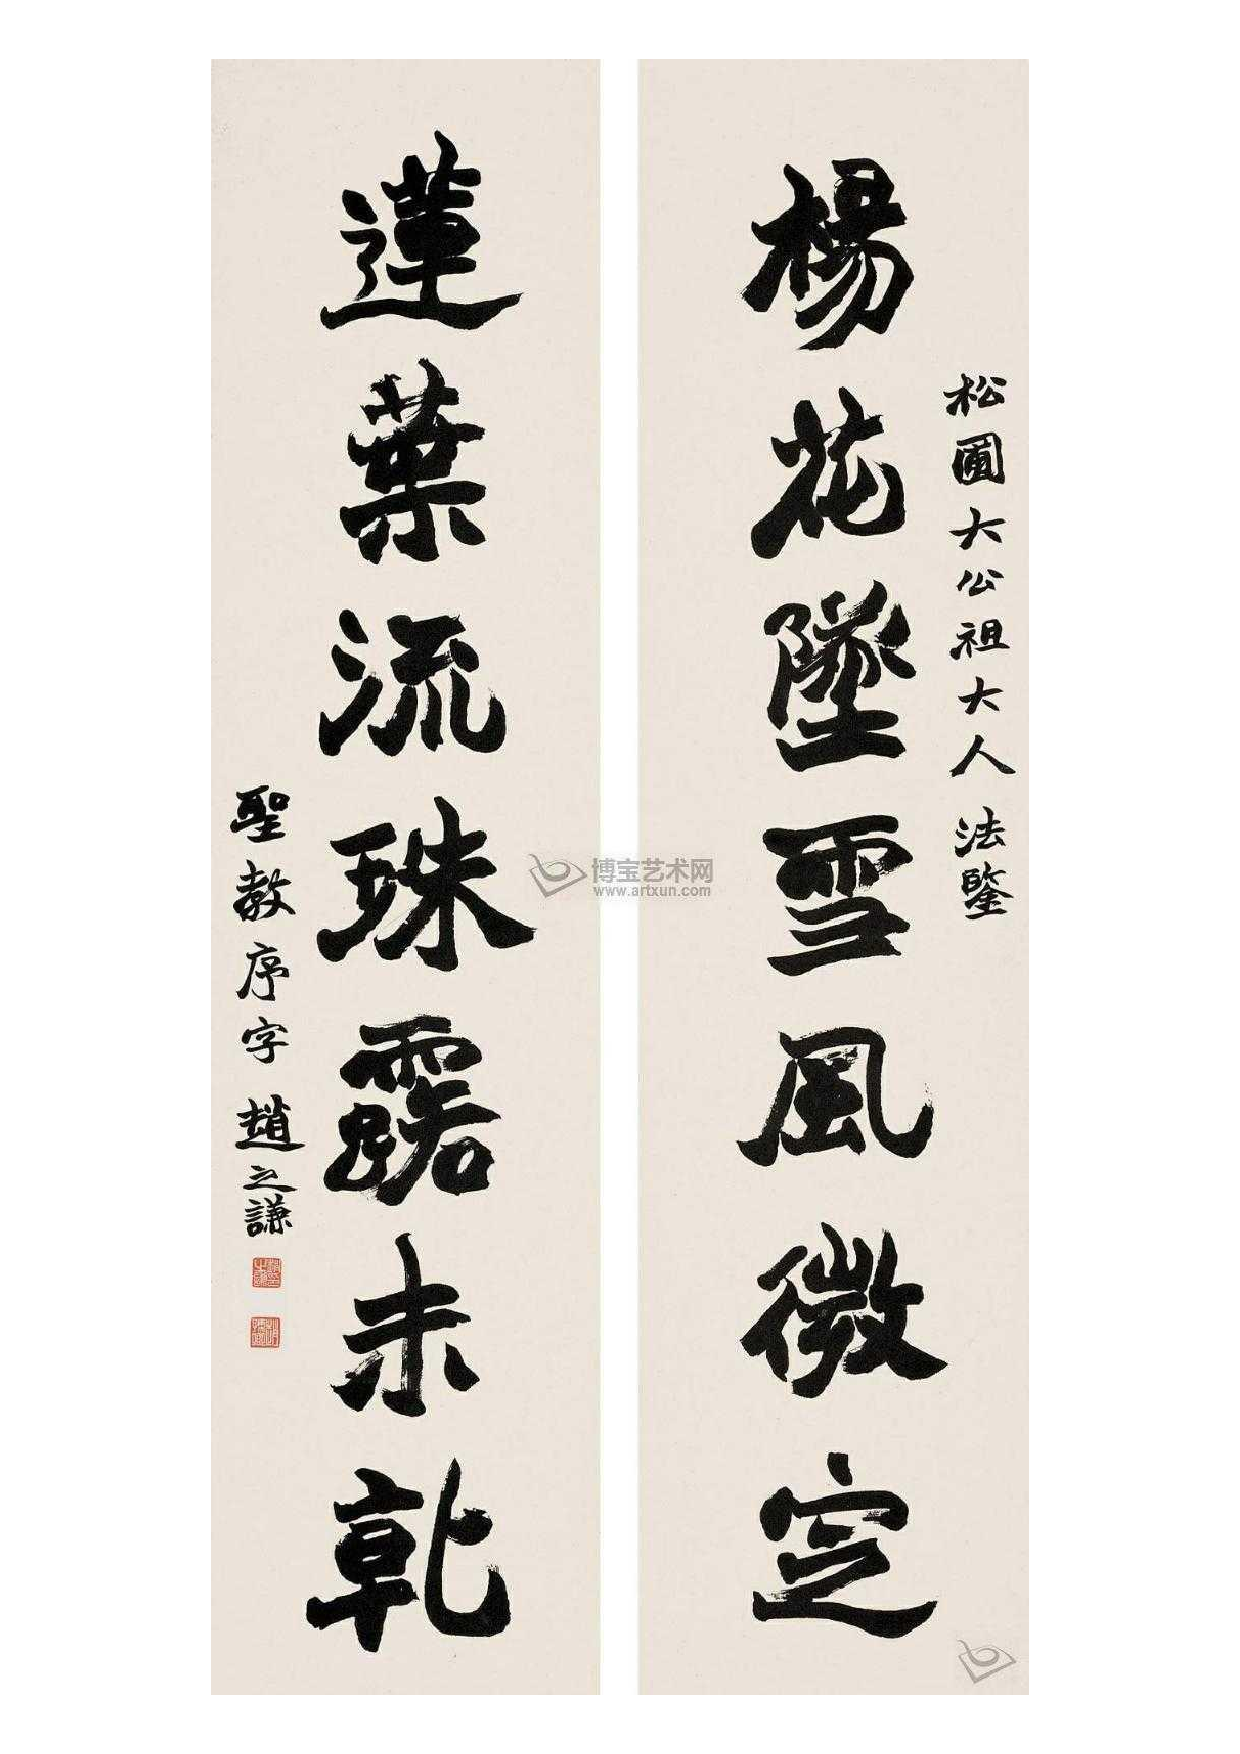 松圃大公祖大人法鑒
楊花墜雪風微定
蓮葉流珠露未乾
聖教序字趙之謙
博宝艺术网
www.artxun.com